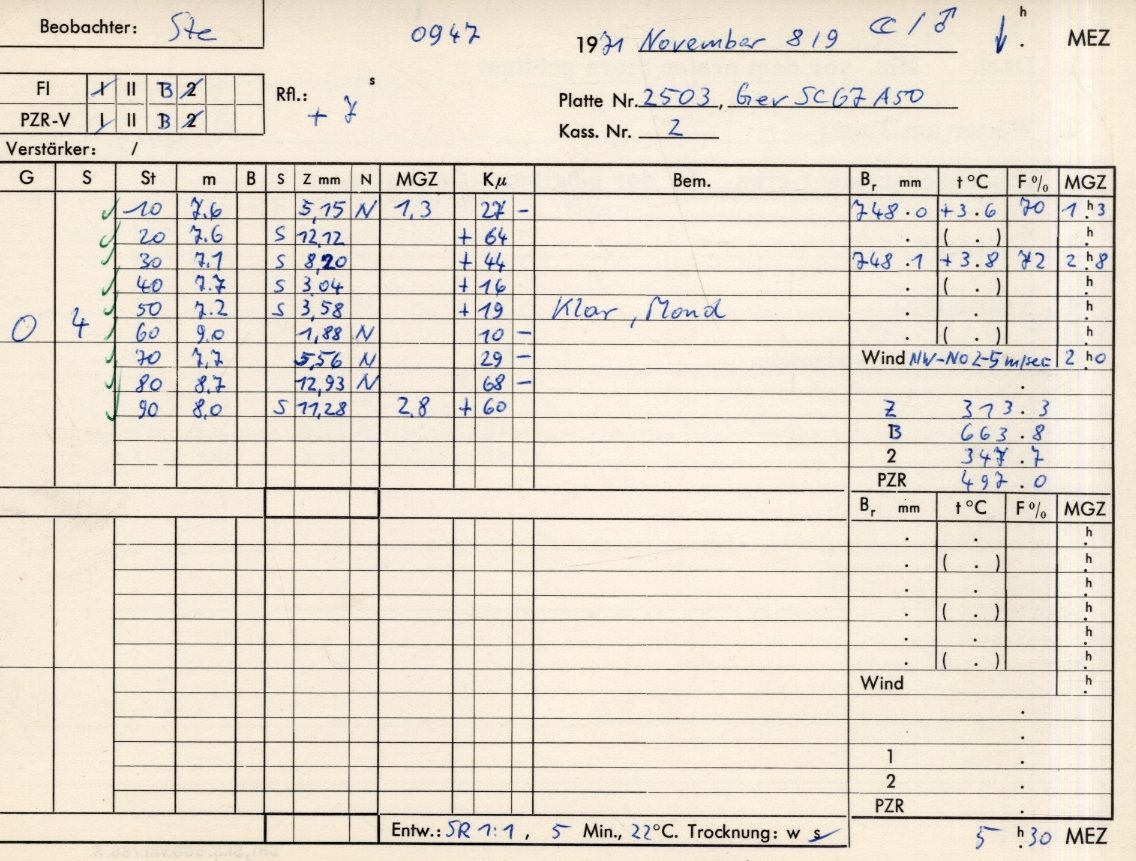 Beobachter: Ste 0947 1971 November 8/9 ☾ / ♂ ↓ h . MEZ
FI I II B 2 Rfl.: + 7 s Platte Nr. 2503, Gev SC67 A50
PZR-V I II B 2 Kass. Nr. 2
Verstärker: /
G S St m B S Z mm N MGZ Kμ Bem. Br mm t °C F % MGZ
10 7.6 5,15 N 1,3 27 - 748.0 +3.6 70 1 h 3
20 7.6 S 12,12 + 64 . ( . ) h .
30 7.1 S 8,20 + 44 748.1 +3.8 72 2 h 8
40 7.7 S 3,04 + 16 . ( . ) h .
0 4 50 7.2 S 3,58 + 19 Klar, Mond . . h .
60 9,0 1,88 N 10 - . ( . ) h .
70 7,7 5,56 N 29 - Wind NW-NO 2-5 m/sec 2 h 0
80 8,7 12,93 N 68 - .
90 8,0 S 11,28 2,8 + 60 Z 313.3
B 663.8
2 347.7
PZR 497.0
Br mm t °C F % MGZ
. . h .
. ( . ) h .
. . h .
. ( . ) h .
. . h .
. ( . ) h .
Wind h .
.
.
1 .
2 .
PZR .
Entw.: SR 1:1, 5 Min., 22°C. Trocknung: w s 5 h 30 MEZ